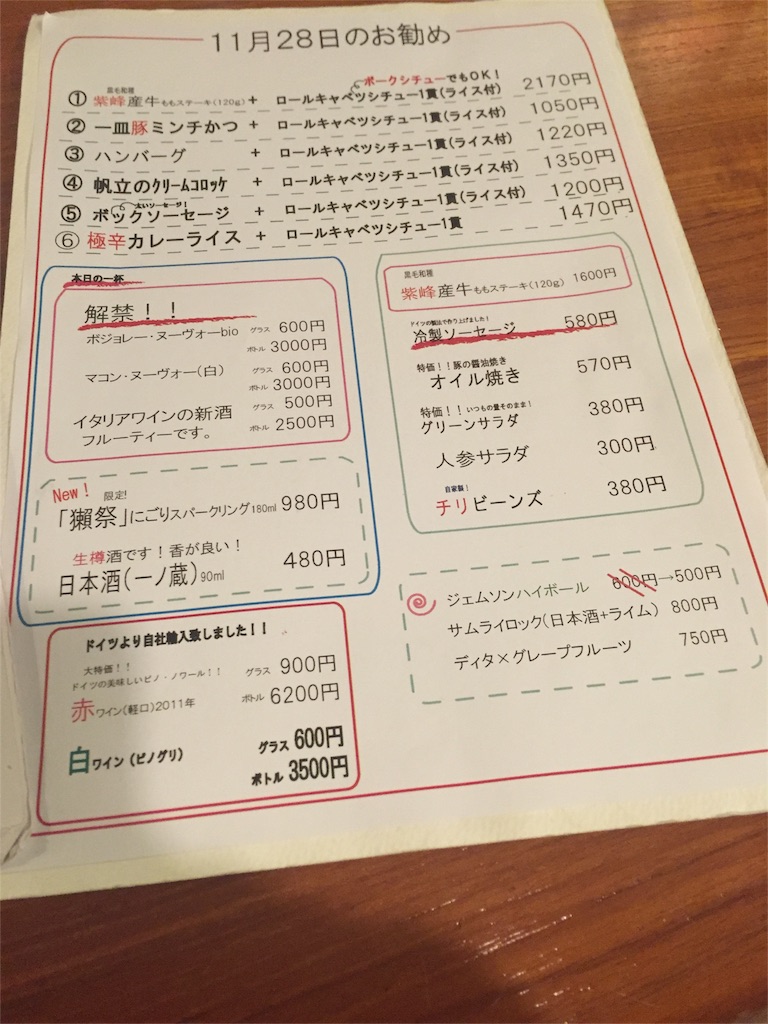 11月28日のお勧め
ポークシチューでもOK！
黒毛和種
① 紫峰産牛ももステーキ(120g) + ロールキャベツシチュー1貫(ライス付) 2170円
② 一皿豚ミンチかつ + ロールキャベツシチュー1貫(ライス付) 1050円
③ ハンバーグ + ロールキャベツシチュー1貫(ライス付) 1220円
④ 帆立のクリームコロッケ + ロールキャベツシチュー1貫(ライス付) 1350円
太いソーセージ！
⑤ ボックソーセージ + ロールキャベツシチュー1貫(ライス付) 1200円
⑥ 極辛カレーライス + ロールキャベツシチュー1貫 1470円
本日の一杯
解禁！！
ボジョレー・ヌーヴォーbio グラス 600円
ボトル 3000円
マコン・ヌーヴォー(白) グラス 600円
ボトル 3000円
イタリアワインの新酒 グラス 500円
フルーティーです。 ボトル 2500円
New！ 限定!
「獺祭」にごりスパークリング180ml 980円
生樽酒です！香が良い！
日本酒(一ノ蔵)90ml 480円
ドイツより自社輸入致しました！！
大特価！！
ドイツの美味しいピノ・ノワール！！ グラス 900円
赤ワイン(軽口)2011年 ボトル 6200円
白ワイン (ピノグリ) グラス 600円
ボトル 3500円
黒毛和種
紫峰産牛ももステーキ(120g) 1600円
ドイツの製法で作り上げました！
冷製ソーセージ 580円
特価！！豚の醤油焼き
オイル焼き 570円
特価！！いつもの量そのまま！
グリーンサラダ 380円
人参サラダ 300円
自家製！
チリビーンズ 380円
ジェムソンハイボール 600円→500円
サムライロック(日本酒+ライム) 800円
ディタ×グレープフルーツ 750円